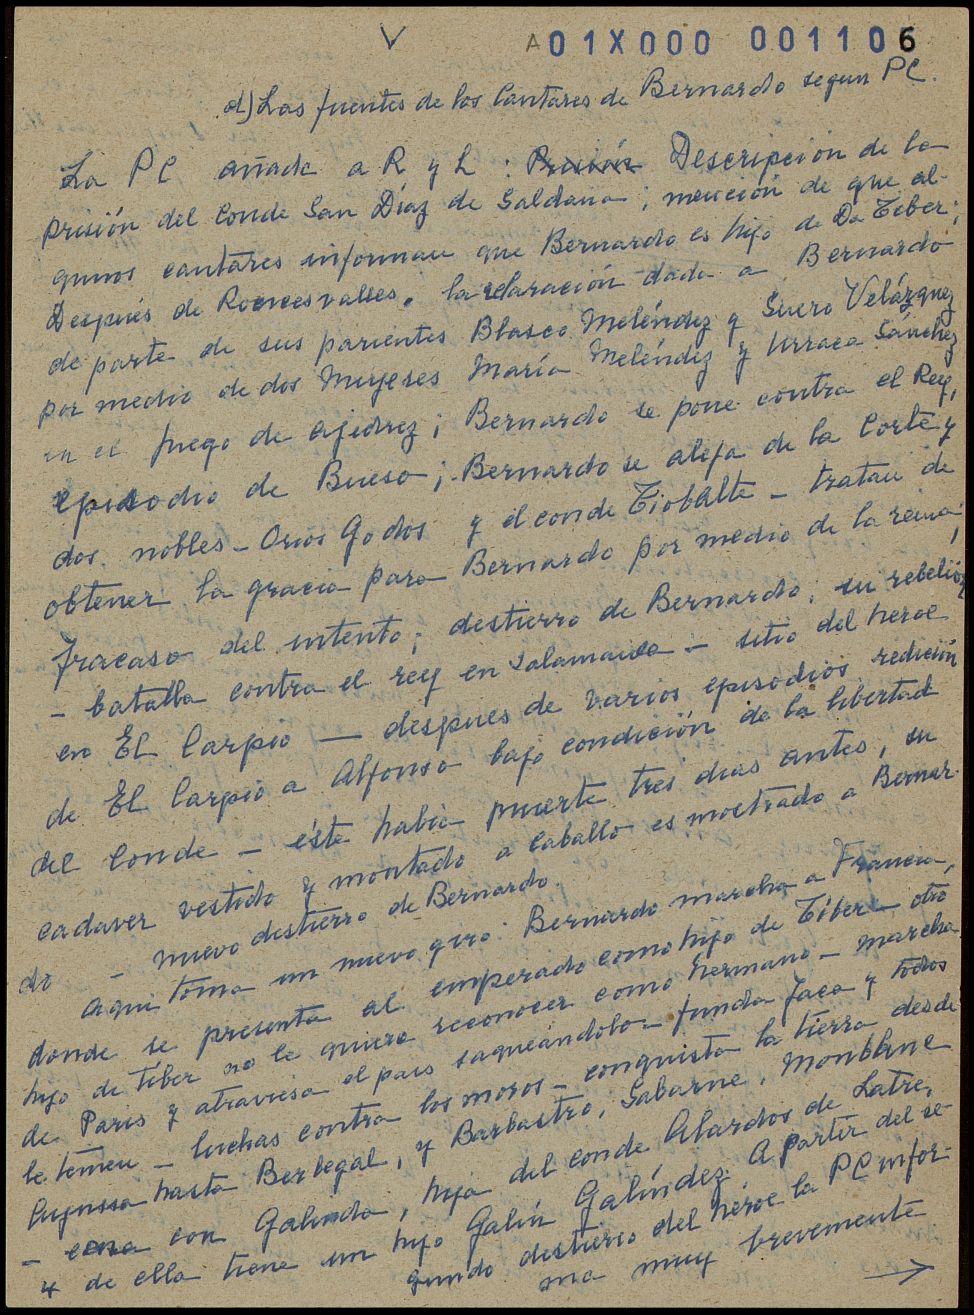 V
A01X000 001106
d) Las fuentes de los Cantares de Bernardo segun PC.
La PC añade a R y L : Prisión Descripción de la
prisión del conde San Díaz de Saldaña ; mención de que al-
gunos cantares informan que Bernardo es hijo de Da Tiber ;
Después de Roncesvalles. la declaración dada a Bernardo
de parte de sus parientes Blasco Meléndez y Suero Velázquez
por medio de dos mujeres María Meléndez y Urraca Sánchez
en el juego de ajedrez ; Bernardo se pone contra el Rey,
episodio de Bueso ; Bernardo se aleja de la Corte y
dos nobles - Orios Godos y el conde Tiobalte - tratan de
obtener la gracia para Bernardo por medio de la reina ;
fracaso del intento ; destierro de Bernardo ; su rebelión
- batalla contra el rey en Salamanca - sitio del heroe
en El Carpio — despues de varios episodios redición
de El Carpio a Alfonso bajo condición de la libertad
del Conde - éste había muerto tres dias antes, su
cadaver vestido y montado a caballo es mostrado a Bernar-
do - nuevo destierro de Bernardo.
Aqui toma un nuevo giro : Bernardo marcha a Francia,
donde se presenta al emperado como hijo de Tiber - otro
hijo de Tiber no le quiere reconocer como hermano - marcha
de Paris y atraviesa el pais saqueándolo - funda Jaca y todos
le temen - luchas contra los moros - conquista la tierra desde
hasta Berbegal, y Barbastro, Sobarbe, Monblanc
- casa con Galinda, hija del conde Alardos de Latre,
y de ella tiene un hijo Galín Galíndez. A partir del se-
gundo destierro del héroe la PC infor-
ma muy brevemente
→